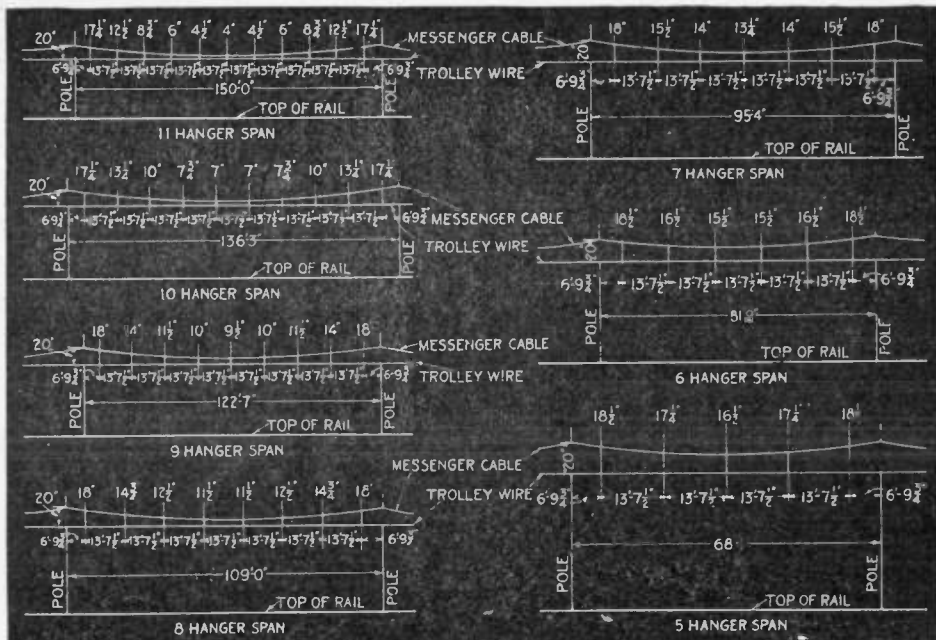 17¼" 12½" 8¾" 6" 4½" 4" 4½" 6" 8¾" 12½" 17¼"
20"
MESSENGER CABLE
TROLLEY WIRE
6'-9¾" 13'-7½" 13'-7½" 13'-7½" 13'-7½" 13'-7½" 13'-7½" 13'-7½" 13'-7½" 13'-7½" 13'-7½" 6'-9¾"
POLE
150'-0"
POLE
TOP OF RAIL
11 HANGER SPAN
17¼" 13¼" 10" 7¾" 7" 7" 7¾" 10" 13¼" 17¼"
20"
MESSENGER CABLE
TROLLEY WIRE
13'-7½" 13'-7½" 13'-7½" 13'-7½" 13'-7½" 13'-7½" 13'-7½" 13'-7½" 13'-7½" 6'-9¾"
POLE
136'3"
POLE
TOP OF RAIL
10 HANGER SPAN
18" 14" 11½" 10" 9½" 10" 11½" 14" 18
20"
MESSENGER CABLE
TROLLEY WIRE
6'-9¾" 13'-7½" 13'-7½" 13'-7½" 13'-7½" 13'-7½" 13'-7½" 13'-7½" 13'-7½" 6'-9¾"
POLE
122'7"
POLE
TOP OF RAIL
9 HANGER SPAN
18" 14¾" 12½" 11½" 11½" 12½" 14¾" 18"
20"
MESSENGER CABLE
TROLLEY WIRE
6'-9¾" 13'-7½" 13'-7½" 13'-7½" 13'-7½" 13'-7½" 13'-7½" 13'-7½" 6'-9¾"
POLE
109'0"
POLE
TOP OF RAIL
8 HANGER SPAN
18" 15½" 14" 13¼" 14" 15½" 18"
20"
6'-9¾" 13'-7½" 13'-7½" 13'-7½" 13'-7½" 13'-7½" 13'-7½" 6'-9¾"
POLE
95'4"
POLE
TOP OF RAIL
7 HANGER SPAN
18½" 16½" 15½" 15½" 16½" 18½"
20"
6'-9¾" 13'-7½" 13'-7½" 13'-7½" 13'-7½" 13'-7½" 6'-9¾"
POLE
POLE
TOP OF RAIL
6 HANGER SPAN
18½" 17¼" 16½" 17¼" 18½"
20"
6'-9¾" 13'-7½" 13'-7½" 13'-7½" 13'-7½" 6'-9¾"
POLE
68
POLE
TOP OF RAIL
5 HANGER SPAN